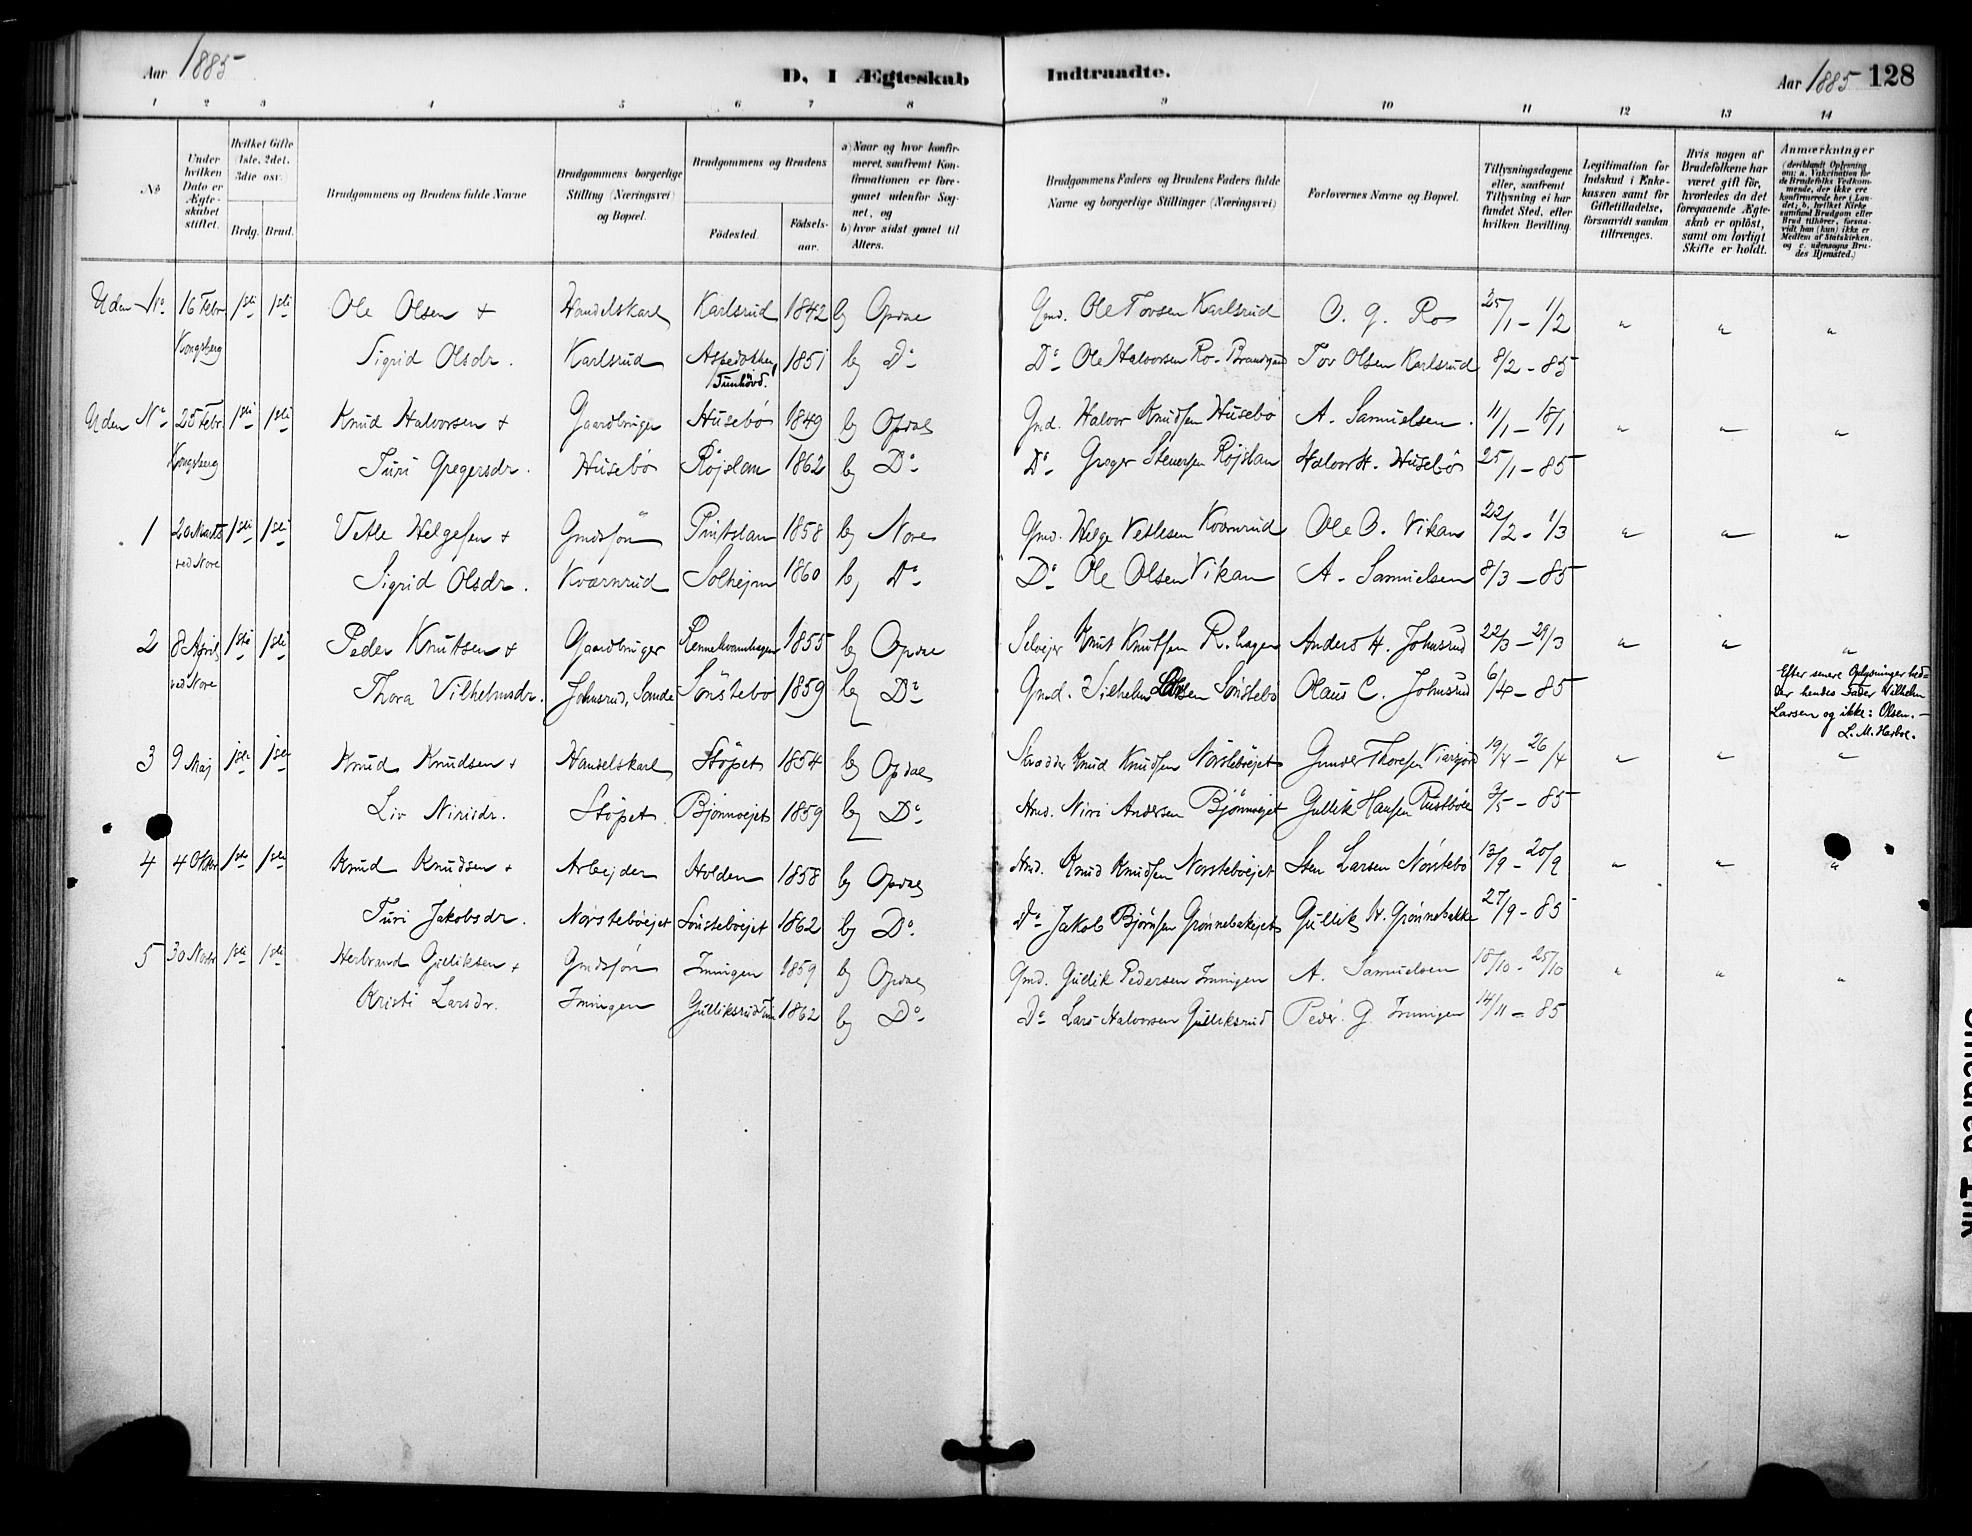 Aar 1885
D, I Ægteskab Indtraadte.
Aar 1885 128
1 2 3 4 5 6 7 8 9 10 11 12 13 14
No
Under hvilken Dato er Ægteskabet stiftet.
Hvilket Gifte (1ste, 2det, 3die osv.)
Brdg. Brud.
Brudgommens og Brudens fulde Navne
Brudgommens borgerlige Stilling (Næringsvei) og Bopæl.
Brudgommens og Brudens
Fødested. Fødselsaar.
a) Naar og hvor konfirmeret, saafremt Konfirmationen er foregaaet udenfor Sognet, og
b) hvor sidst gaaet til Alters.
Brudgommens Faders og Brudens Faders fulde Navne og borgerlige Stillinger (Næringsvei)
Forlovernes Navne og Bopæl.
Tillysningsdagene eller, saafremt Tillysning ei har fundet Sted, efter hvilken Bevilling.
Legitimation for Indskud i Enkekassen samt for Giftetilladelse, forsaavidt saadan tiltrænges.
Hvis nogen af Brudefolkene har været gift før, hvorledes da det foregaaende Ægteskab er opløst, samt om lovligt Skifte er holdt.
Anmærkninger
(deriblandt Oplysning om: a. Vakcination for de Brudefolks Vedkommende, der ikke ere konfirmerede her i Landet; b. hvilket Kirkesamfund Brudgom eller Brud tilhører, forsaavidt han (hun) ikke er Medlem af Statskirken, og c. udensogns Brudes Hjemsted.)
Uden No 16 Febr 1ste 1ste Ole Olsen + Handelskarl Karlsrud 1842 b, Opdal Gmd. Ole Tovsen Karlsrud O. G. Ro 25/1 – 1/2 " " "
Kongsberg Sigrid Olsdr. Karlsrud 1851 b, Do Do Ole Halvorsen Ro- Tov Olsen Karlsrud 8/2 – 85
Tunhövd.
Uden No 25 Febr 1ste 1ste Knud Halvorsen + Gaardbruger Husebö 1849 b, Opdal Gmd. Halvor Knudsen Husebö A. Samuelsen. 11/1 – 18/1 " " "
Kongsberg Turi Gregersdr. Husebö Röjslan 1862 b, Do Do Greger Stenersen Röjslan Halvor H. Husebö 25/1 – 85
1 20 Marts 1ste 1ste Vetle Helgesen + Gmdssön 1858 b, Nore Gmd. Helge Vetlesen Kværnrud Ole O. Vikan 22/2 – 1/3 " " "
ved Nore Sigrid Olsdr. Kværnrud Solhejm 1860 b, Do Do Ole Olsen Vikan A. Samuelsen 8/3 – 85
2 8 April 1ste 1ste Peder Knutsen + Gaardbruger Rennehvamhagen 1855 b, Opdal Selvejer Knut Knutsen R. hagen Anders H. Johnsrud 22/3 – 29/3 " " "
ved Nore Thora Vilhelmsdr. Johnsrud, Sande Sönstebö 1859 b, Do Gmd. Vilhelm Larsen Sönstebö Olaus C. Johnsrud 6/4 – 85
Efter senere Oplysninger hed-
der hendes Fader Wilhelm
Larsen og ikke: Olsen. –
L. M. Harboe.
3 9 Maj 1ste 1ste Knud Knudsen + Handelskarl Stöpet 1854 b, Opdal Skrædder Knud Knudsen Nörsteböejet Gunder Thoresen 19/4 – 26/4 " " "
Liv Nirisdr. Stöpet Björnvejet 1859 b, Do Hmd. Niri Andersen Björnvejet Gullik Hansen 3/5 – 85
4 4 Oktbr 1ste 1ste Knud Knudsen + Arbejder Holden 1858 b, Opdal Hmd. Knud Knudsen Norsteböejet Sten Larsen Nörstebö 13/9 – 20/9 " " "
Turi Jakobsdr. Norsteböejet Sönsteböejet 1862 b, Do Do Jakob Björnsen Grönnebakejet Gullik N. Grönnebakke 27/9 – 85
5 30 Novbr 1ste 1ste Herbrand Gulliksen + Gmdssön Imingen 1859 b, Opdal Gmd. Gullik Pedersen Imingen A. Samuelsen 18/10 – 25/10 " " "
Kristi Larsdr. Imingen Gulliksrud 1862 b, Do Do Lars Halvorsen Gulliksrud Peder G. Imingen 14/11 – 85